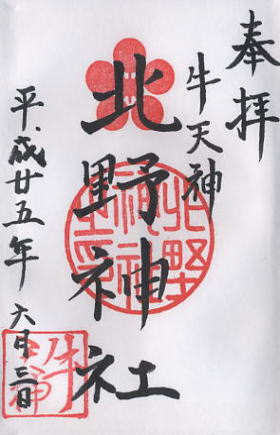 奉拝
牛天神
北野神社
平成廿五年
六月二日
北野神社之印
牛天神